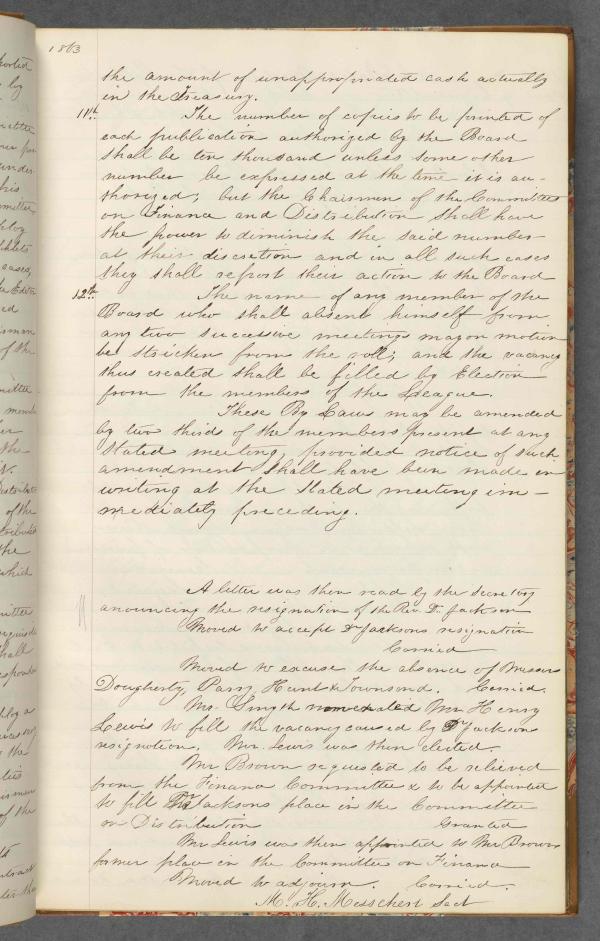 1863
the amount of unappropriated cash actually
in the Treasury.
11th. The number of copies to be printed of
each publication authorized by the Board
shall be ten thousand unless some other
number be expressed at the time it is au-
thorized; but the Chairmen of the Committees
on Finance and Distribution shall have
the power to diminish the said number
at their discretion and in all such cases
they shall report their action to the Board
12th. The name of any member of the
Board who shall absent himself from
any two successive meetings may on motion
be stricken from the roll; and the vacancy
thus created shall be filled by Election
from the members of the League.
These By Laws may be amended
by two thirds of the members present at any
stated meeting, provided notice of such
amendment shall have been made in
writing at the stated meeting im-
mediately preceding.
A letter was then read by the Secretary
anouncing the resignation of the Rev. Dr. Jackson
Moved to accept Dr Jacksons resignation
Carried
Moved to excuse the absence of Messrs
Dougherty, Parry, Hunt & Townsend. Carried.
Mr. Smyth nominated Mr. Henry
Lewis to fill the vacancy caused by Dr Jacksons
resignation. Mr. Lewis was then elected.
Mr Brown requested to be relieved
from the Finance Committee & to be appointed
to fill Dr Jacksons place in the Committee
on Distribution Granted
Mr Lewis was then appointed to Mr Browns
former place in the Committee on Finance
Moved to adjourn. Carried.
M. H. Messchert Sect